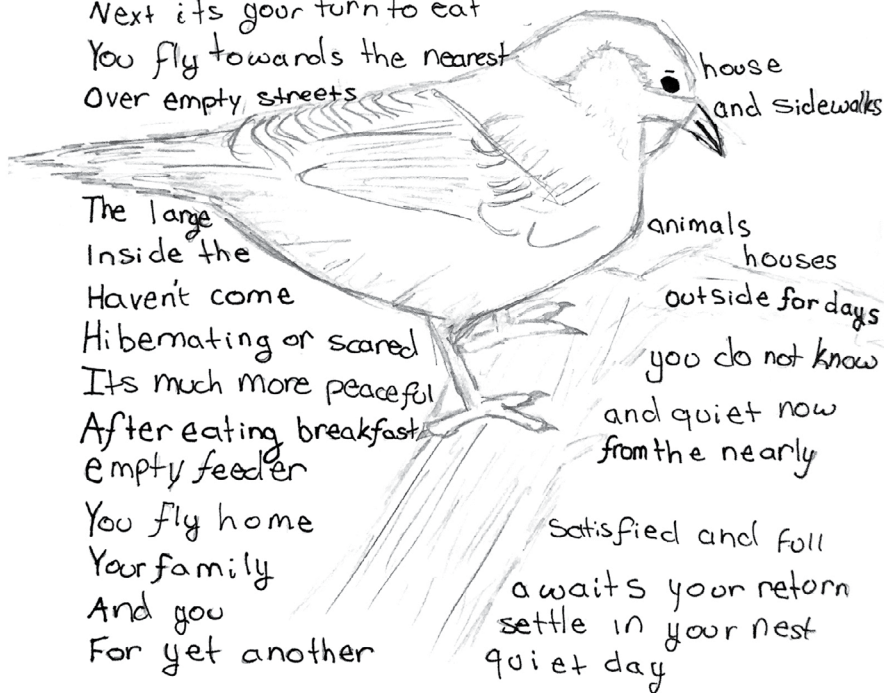 Next its your turn to eat
You fly towards the nearest house
Over empty streets and sidewalks
The large animals
Inside the houses
Haven't come outside for days
Hibernating or scared you do not know
Its much more peaceful and quiet now
After eating breakfast from the nearly
empty feeder
You fly home satisfied and full
Your family awaits your return
And you settle in your nest
For yet another quiet day